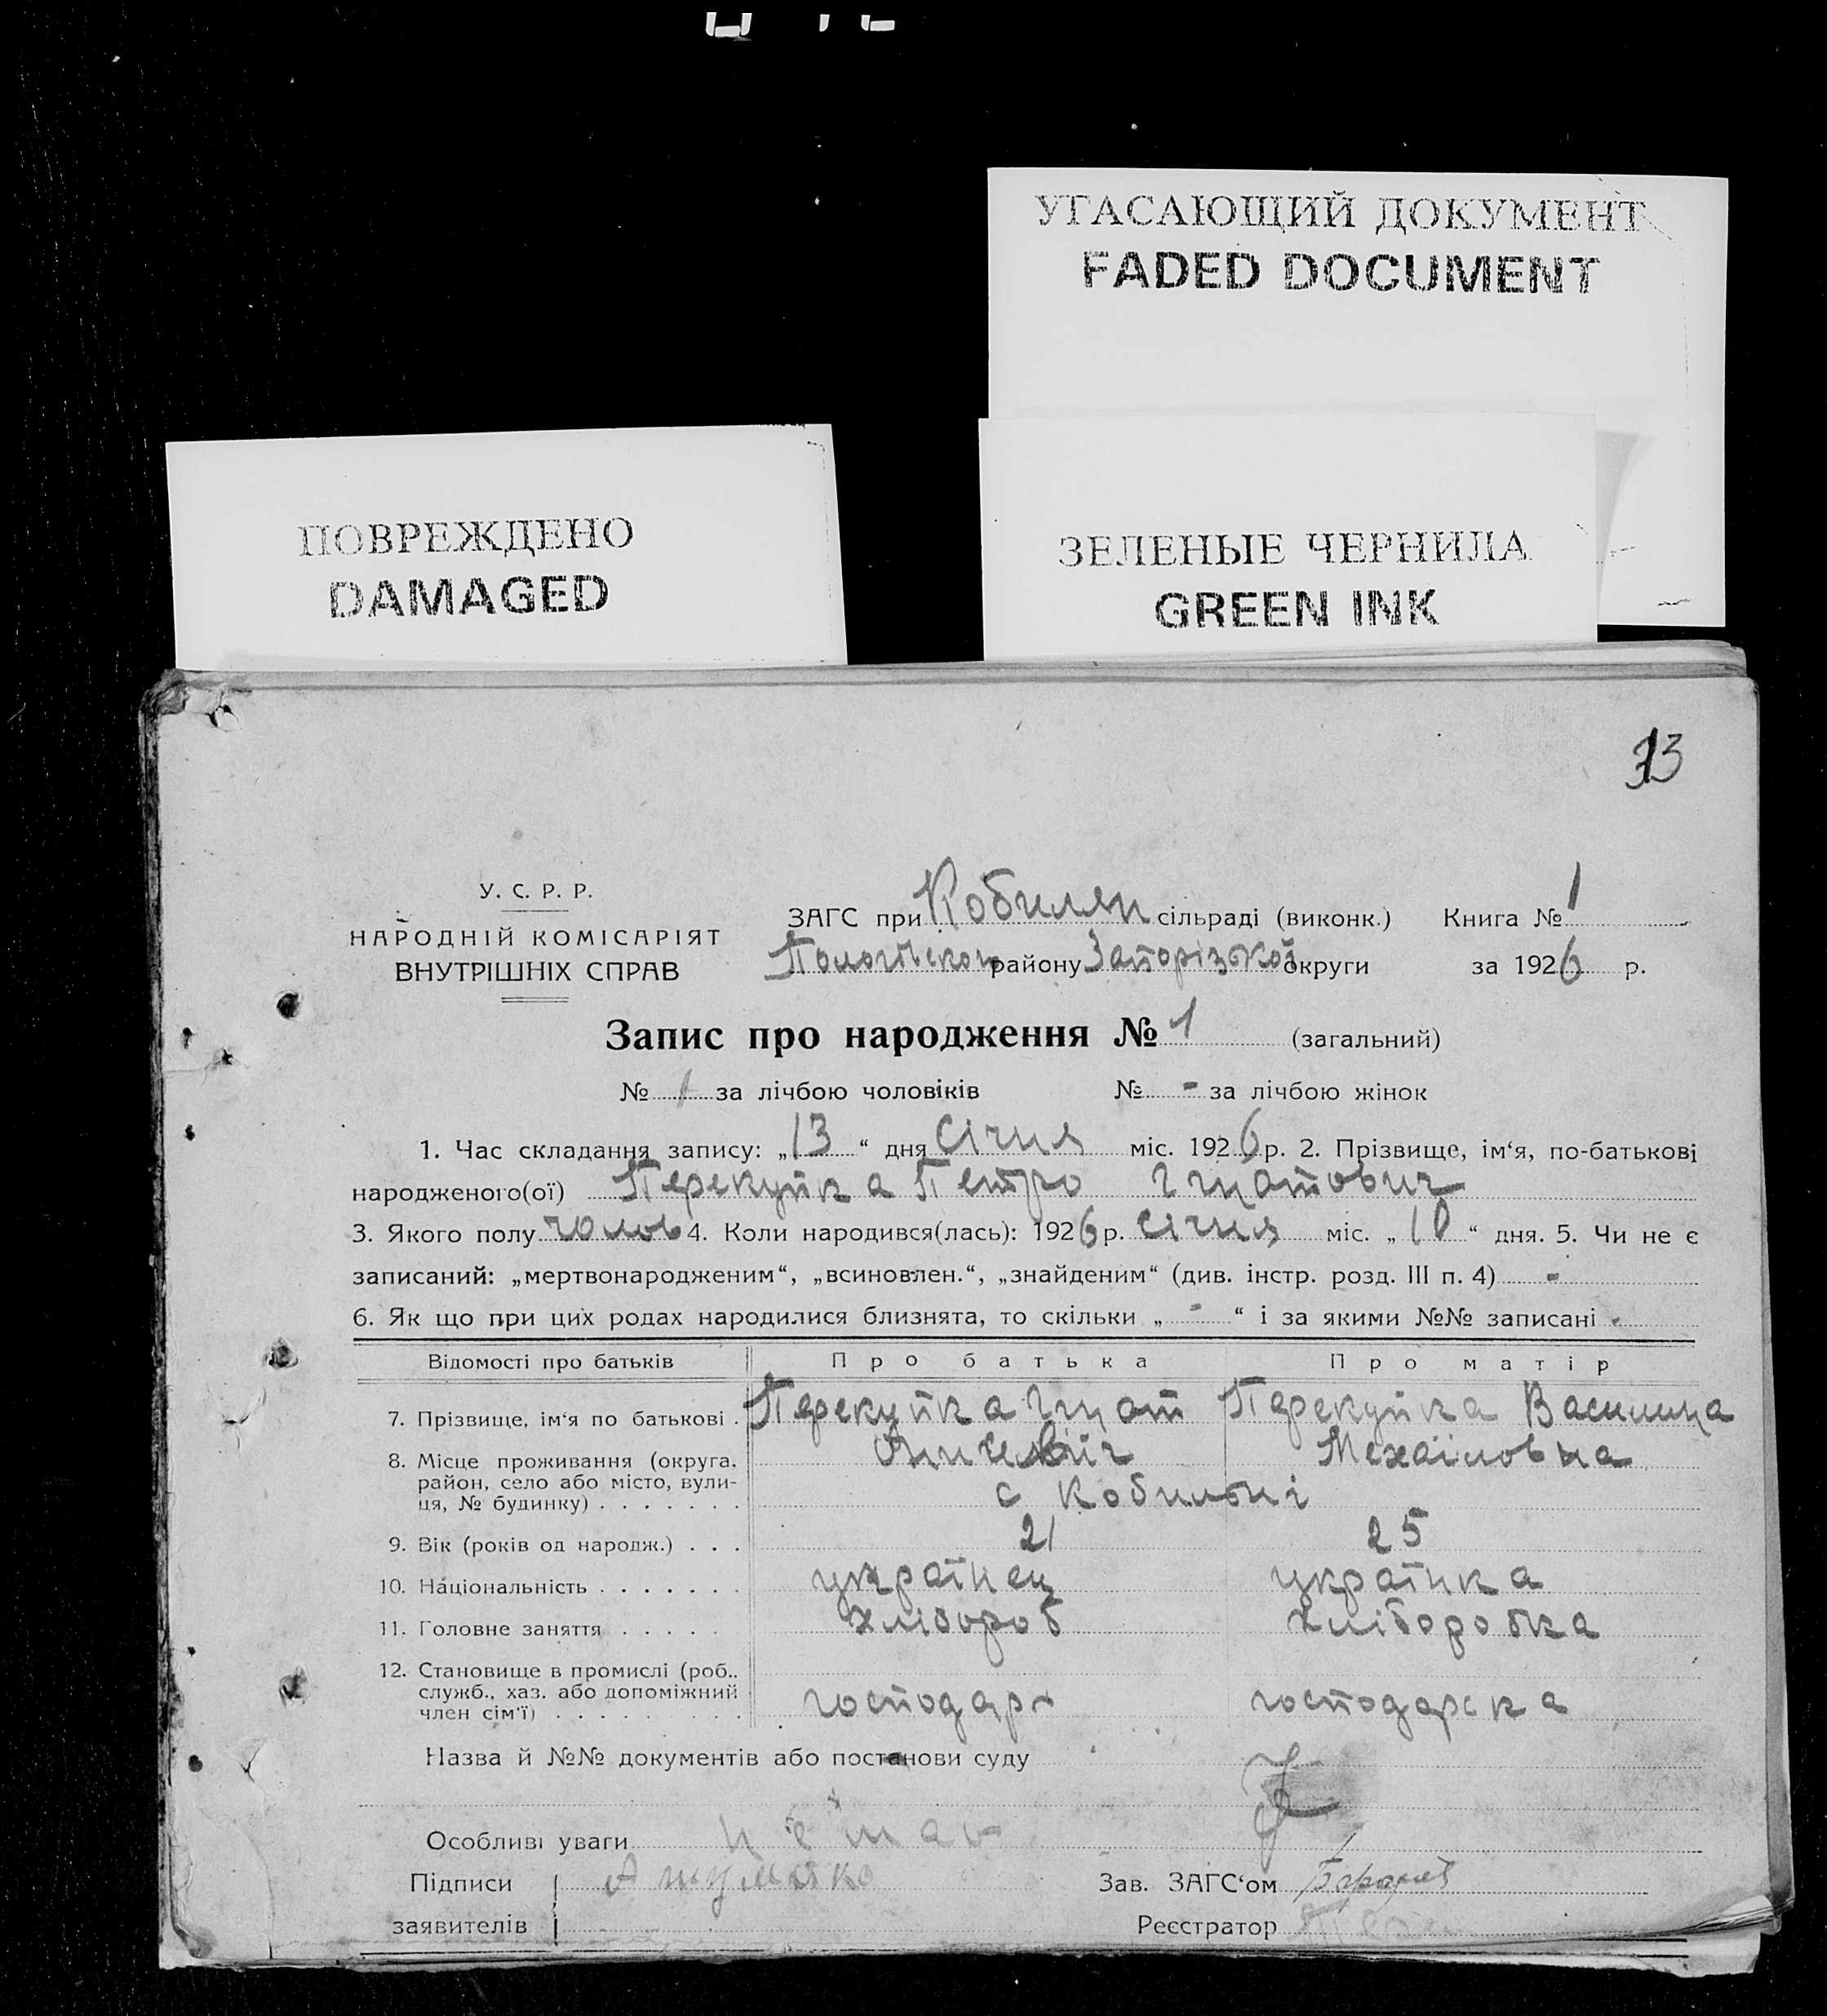 УГАСАЮЩИЙ ДОКУМЕНТ
FADED DOCUMENT
ПОВРЕЖДЕНО
DAMAGED
ЗЕЛЕНЫЕ ЧЕРНИЛА
GREEN INK
У. С. Р. Р.
НАРОДНІЙ КОМІСАРІЯТ
ВНУТРІШНІХ СПРАВ
ЗАГС при Кобилян сільраді (виконк.) Книга № 1
району Запорізької округи за 1926 р.
Запис про народження № 1 (загальний)
№ 1 за лічбою чоловіків № - за лічбою жінок
1. Час складання запису: „13“ дня Січня міс. 1926 р. 2. Прізвище, ім‘я, по-батькові
народженого(ої) Перекупка Петро Гнатович
3. Якого полу чолов 4. Коли народився(лась): 1926 р. січня міс. „10“ дня. 5. Чи не є
записаний: „мертвонародженим“, „всиновлен.“, „знайденим“ (див. інстр. розд. III п. 4) -
6. Як що при цих родах народилися близнята, то скільки „-“ і за якими №№ записані -
Відомості про батьків Про батька Про матір
7. Прізвище, ім‘я по батькові . Перекупка Гнат Перекупка Василина
Механловна
8. Місце проживання (округа, район, село або місто, вулиця, № будинку) . . . . . . . с Кобильні
9. Вік (років од народж.) . . . 21 25
10. Національність . . . . . . . українец українка
11. Головне заняття . . . . . хлібороб хліборобка
12. Становище в промислі (роб., служб., хаз. або допоміжний член сім‘ї) . . . . . . . . . господарь господарска
Назва й №№ документів або постанови суду
Особливі уваги немає
Підписи
заявителів
Зав. ЗАГС‘ом
Реєстратор